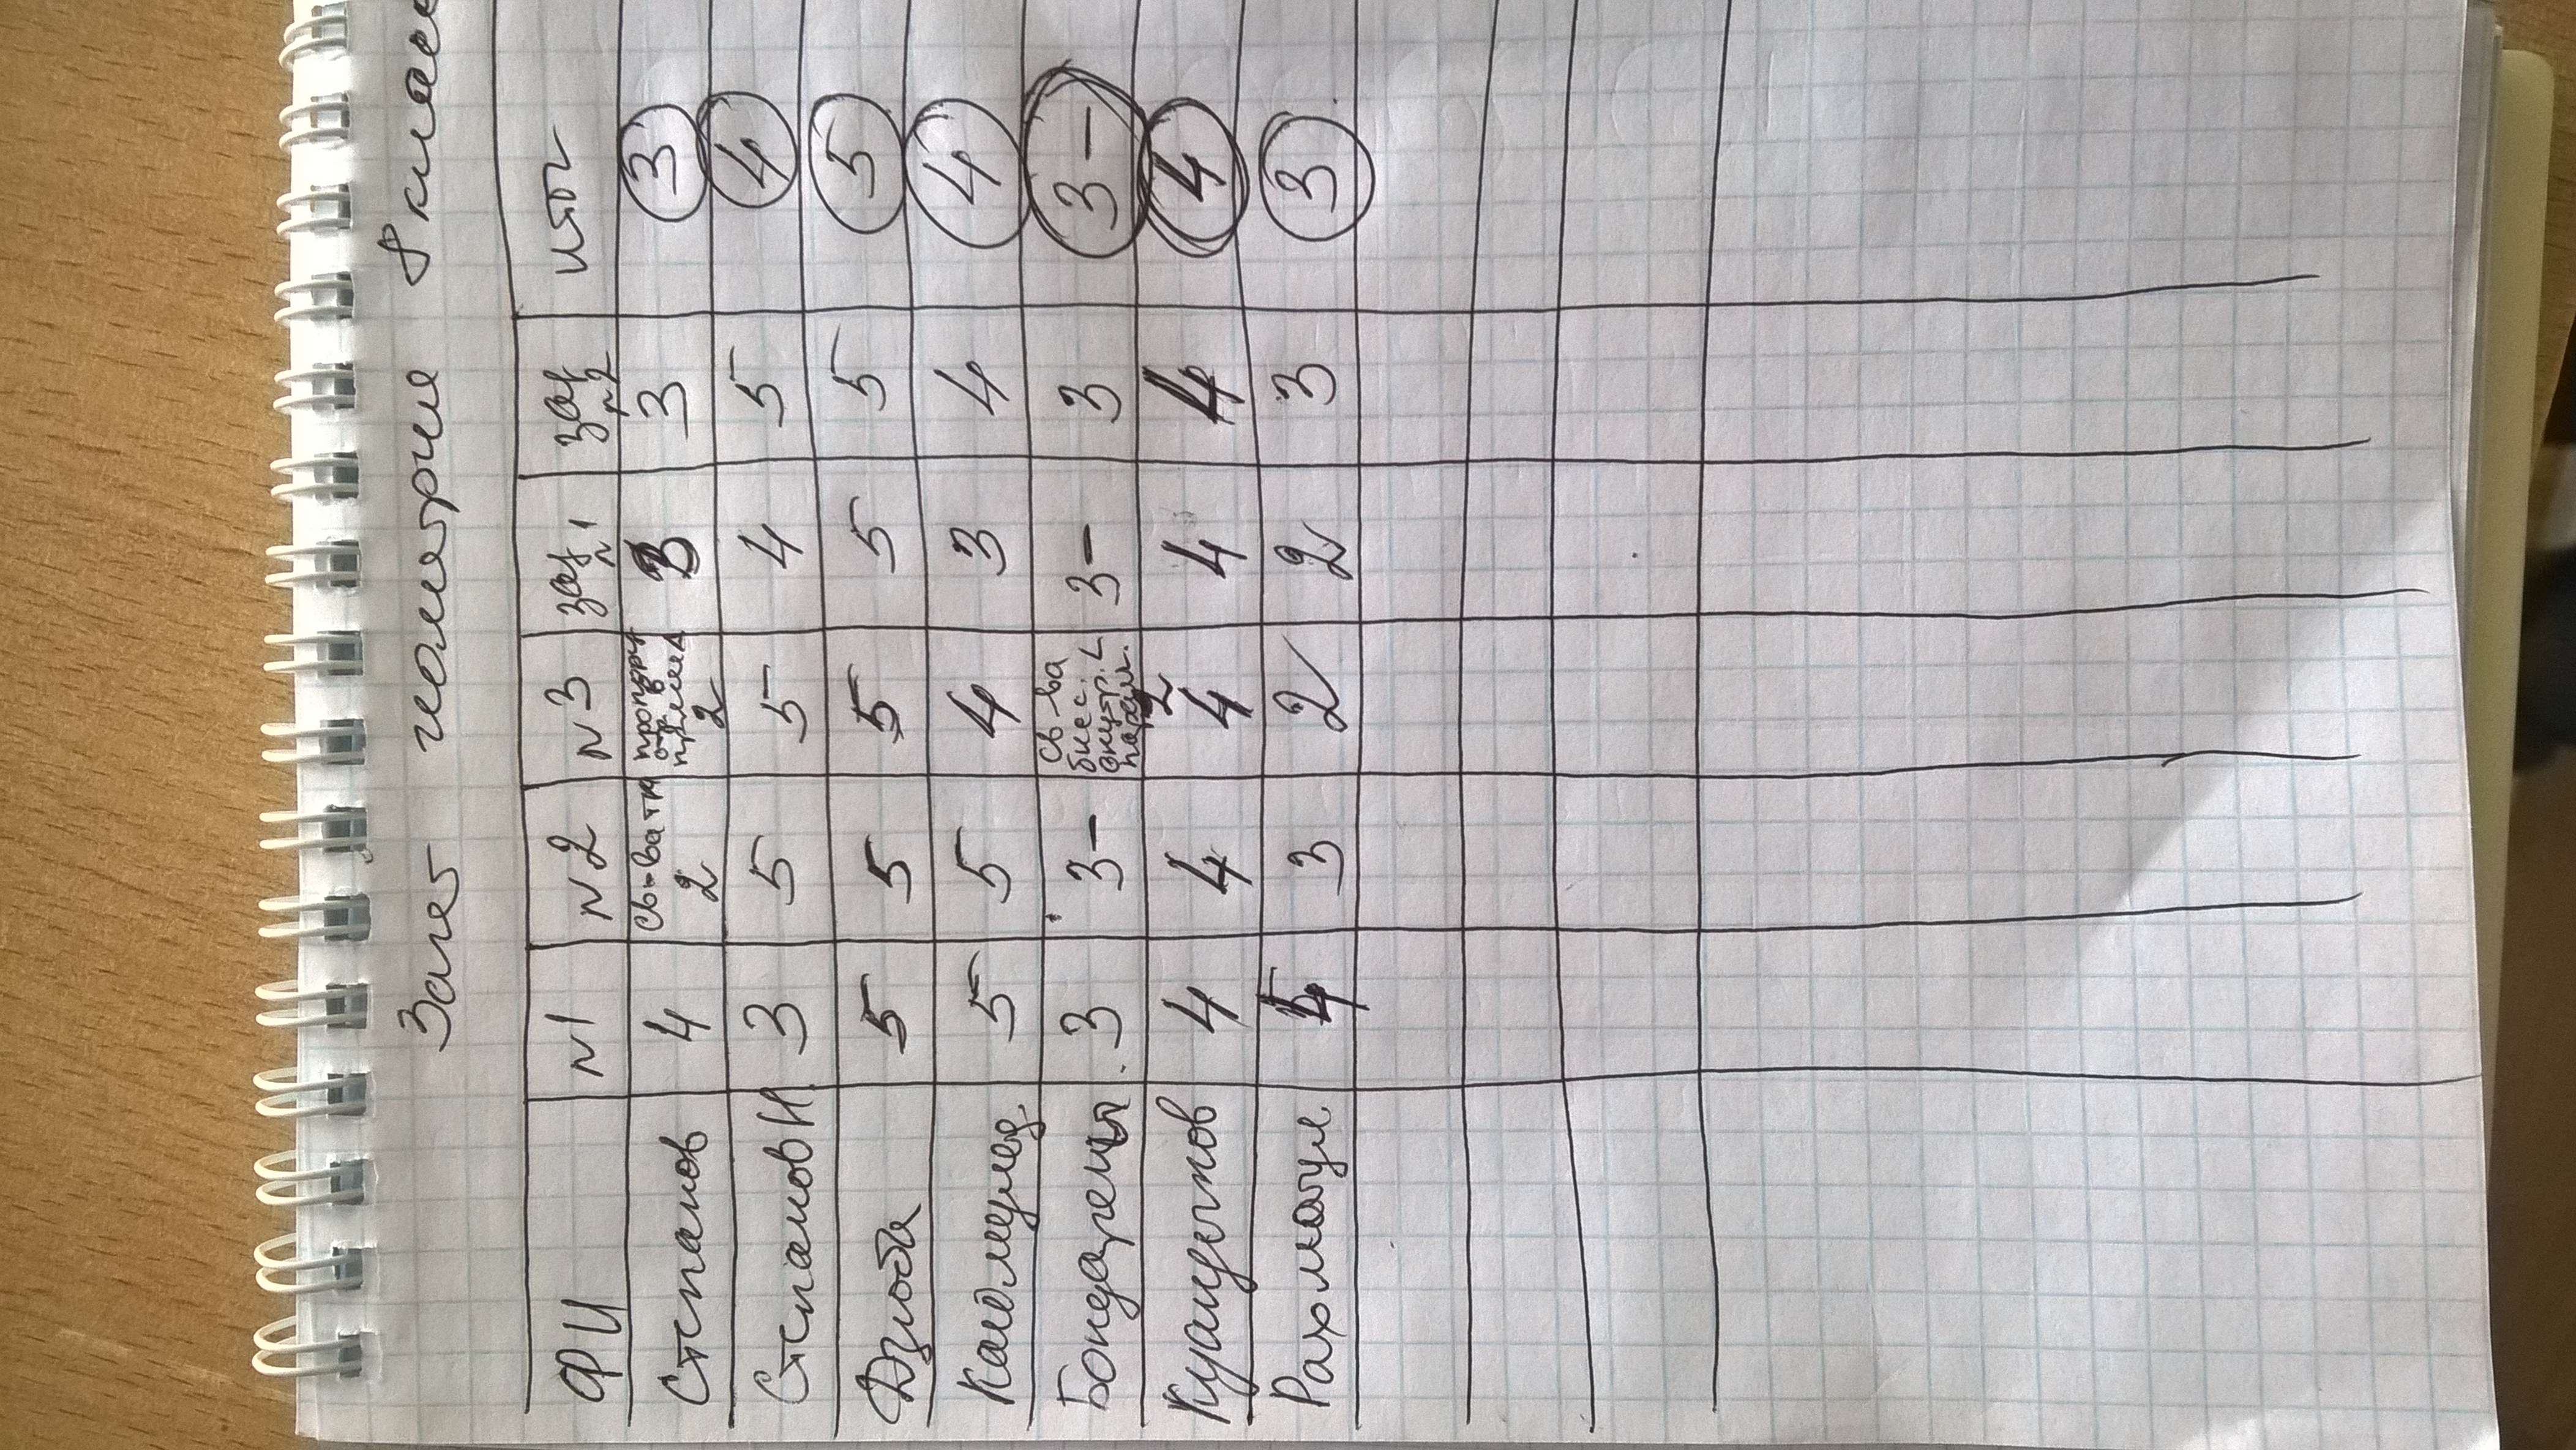 Зачет геометрия 8 класс
ФИ №1 №2 №3 зад №1 зад №2 итог
Степанов 4 св-ва тр 2 пропорц отр в прямоуг Δ 2 3 3 3
Степанов И. 3 5 5 4 5 4
Дзюба 5 5 5 5 5 5
5 5 4 3 4 4
Бондарень 3 3- св-ва бисс. внутр. ∠ парал. 2 3- 3 3-
4 4 4 4 4 4
Рахматул 3 2 2 3 3